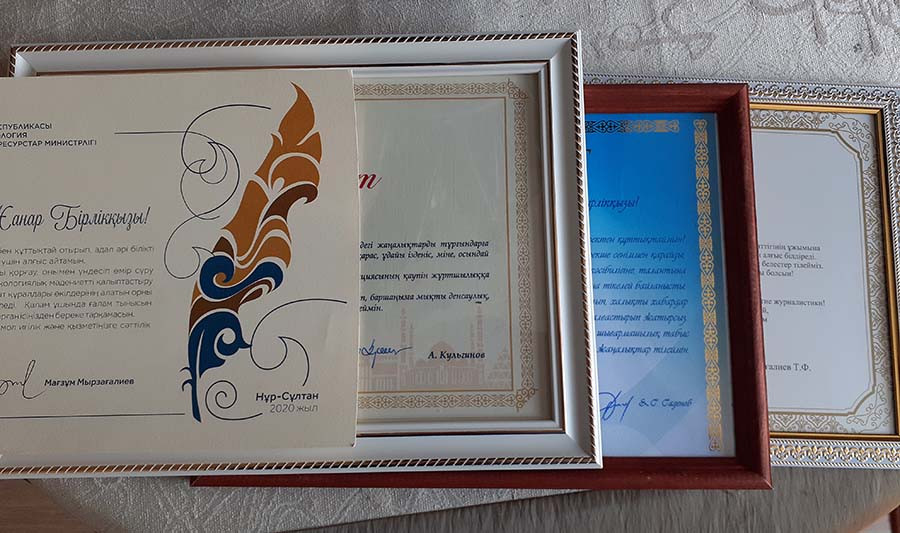 СПУБЛИКАСЫ
ОЛОГИЯ
РЕСУРСТАР МИНИСТРЛІГІ
Жанар Бірлікқызы!
ен құттықтай отырып, адал әрі білікті
үшін алғыс айтамын.
ы қорғау, онымен үндесіп өмір сүру
кологиялық мәдениетті қалыптастыру
ат құралдары өкілдерінің алатын орны
реді. Қалам ұшында ғалам тынысын
рганісіңізден береке тарқамасын.
мол игілік және қызметіңізге сәттілік
Мағзұм Мырзағалиев
Нұр-Сұлтан
2020 жыл
т
дегі жаңалықтарды тұрғындарға
қарас, ұдайы ізденіс, міне, осындай
циясының қаупін жұртшылыққа
п, баршаңызға мықты денсаулық,
леймін.
А. Кульгинов
рлікқызы!
ректен құттықтаймын!
рекше сеніммен қарайды
кәсібилігіне, талантына
а тікелей байланысты
ың, халықты хабардар
шығармашылық табыс
жаңалықтар тілеймін
Б. С. Сапонов
ттігінің ұжымына
алғыс білдіреді.
белестер тілейміз.
ы болсын!
ие журналистики!
й,
ғалиев Т.Ф.